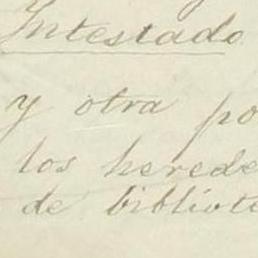 Intestado
y otra po
los herede
de bibliote